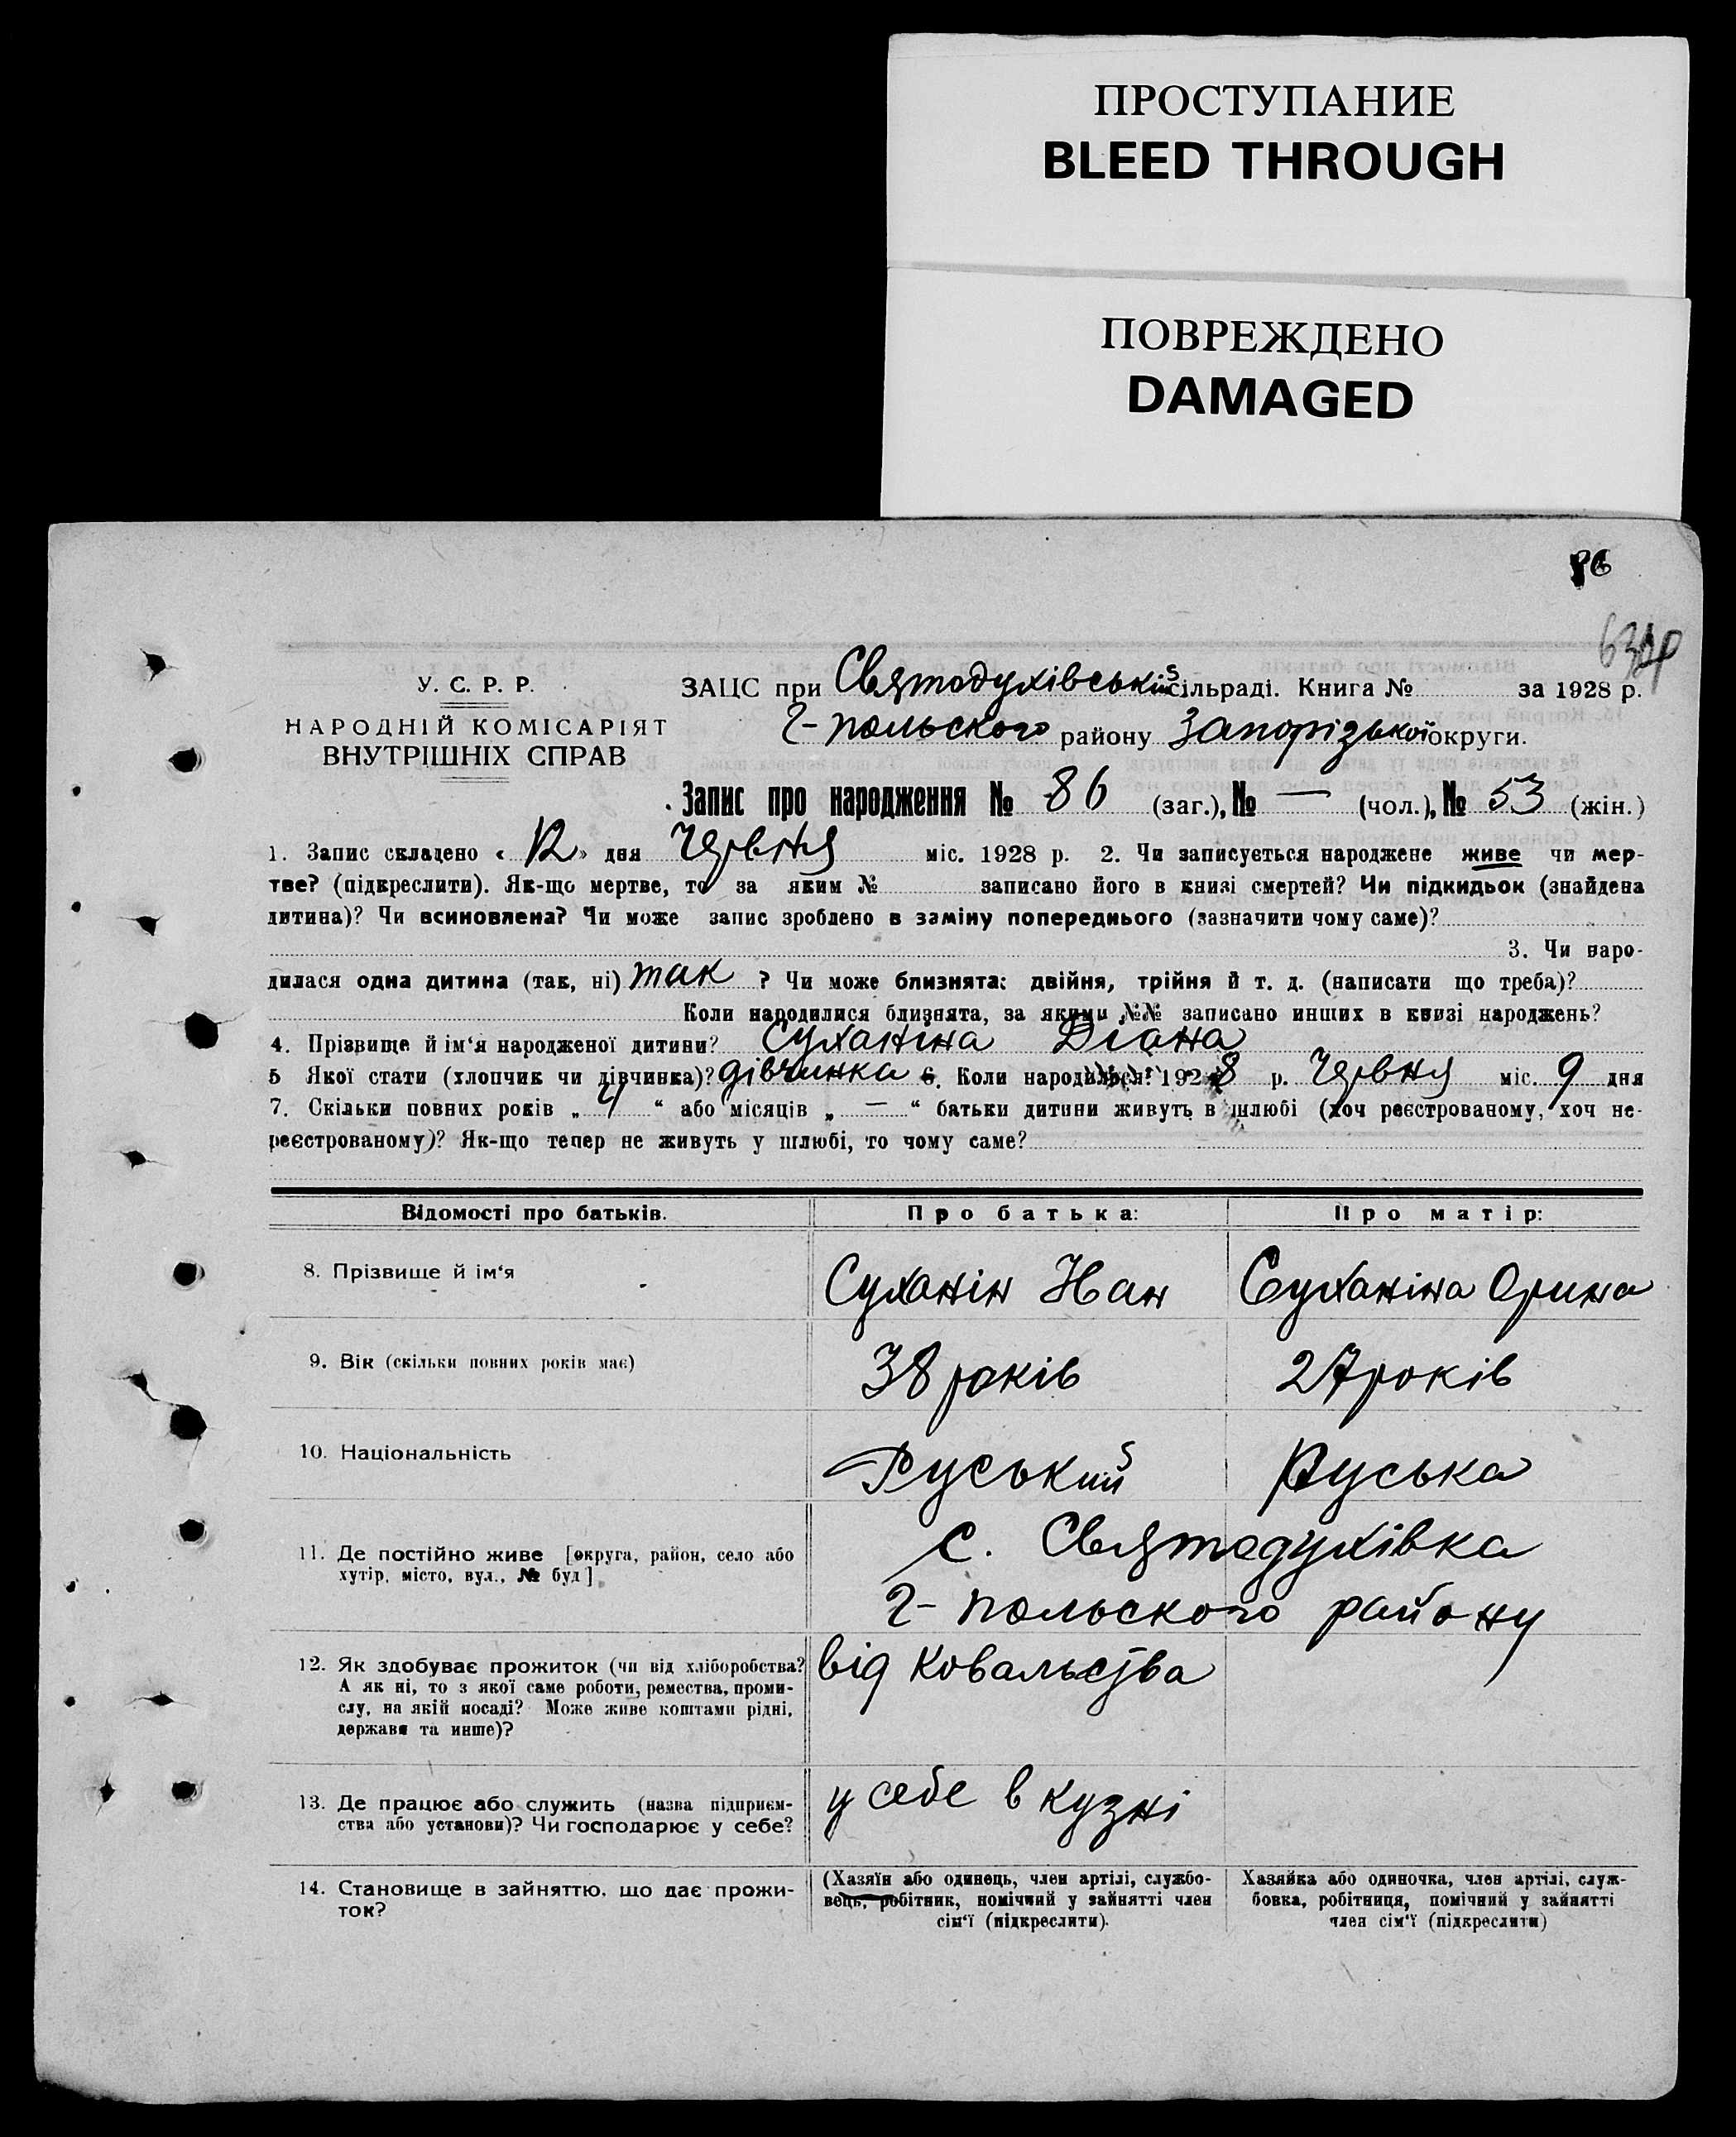 ПРОСТУПАНИЕ
BLEED THROUGH
ПОВРЕЖДЕНО
DAMAGED
86
У. С. Р. Р.
НАРОДНІЙ КОМІСАРІЯТ
ВНУТРІШНІХ СПРАВ
ЗАЦС при Святодухівській сільраді. Книга № за 1928 р.
Г-польского району Запорізької округи.
Запис про народження № 86 (заг.), № — (чол.), № 53 (жін.)
1. Запис складено « 12 » дня Червня міс. 1928 р. 2. Чи записується народжене живе чи мер-
тве? (підкреслити). Як-що мертве, то за яким № записано його в книзі смертей? Чи підкидьок (знайдена
дитина)? Чи всиновлена? Чи може запис зроблено в заміну попереднього (зазначити чому саме)?
3. Чи наро-
дилася одна дитина (так, ні) так ? Чи може близнята: двійня, трійня й т. д. (написати що треба)?
Коли народилися близнята, за якими №№ записано инших в книзі народжень?
4. Прізвище й ім‘я народженої дитини? Суханіна Діана
5 Якої стати (хлопчик чи дівчинка)? дівчинка 6. Коли народилься? 192 8 р. Червня міс. 9 дня
7. Скільки повних років „ 4 “ або місяців „ — “ батьки дитини живуть в шлюбі (хоч реєстрованому, хоч не-
реєстрованому)? Як-що тепер не живуть у шлюбі, то чому саме?
Відомості про батьків. Про батька: Про матір:
8. Прізвище й ім‘я Суханін Иван Суханіна Орина
9. Вік (скільки повних років має) 38 років 27 років
10. Національність Руський Руська
11. Де постійно живе [округа, район, село або
хутір, місто, вул., № буд]
с. Святодухівка
Г-польского району
12. Як здобуває прожиток (чи від хліборобства? від Ковальства
А як ні, то з якої саме роботи, ремества, проми-
слу, на якій посаді? Може живе коштами рідні,
держави та инше)?
13. Де працює або служить (назва підприєм-
ства або установи)? Чи господарює у себе?
у себе в кузні
14. Становище в зайняттю, що дає прожи-
ток?
(Хазяїн або одинець, член артілі, службо-
вець, робітник, помічний у зайнятті член
сім‘ї (підкреслити).
Хазяйка або одиночка, член артілі, служ-
бовка, робітниця, помічний у зайнятті
член сім‘ї (підкреслити)